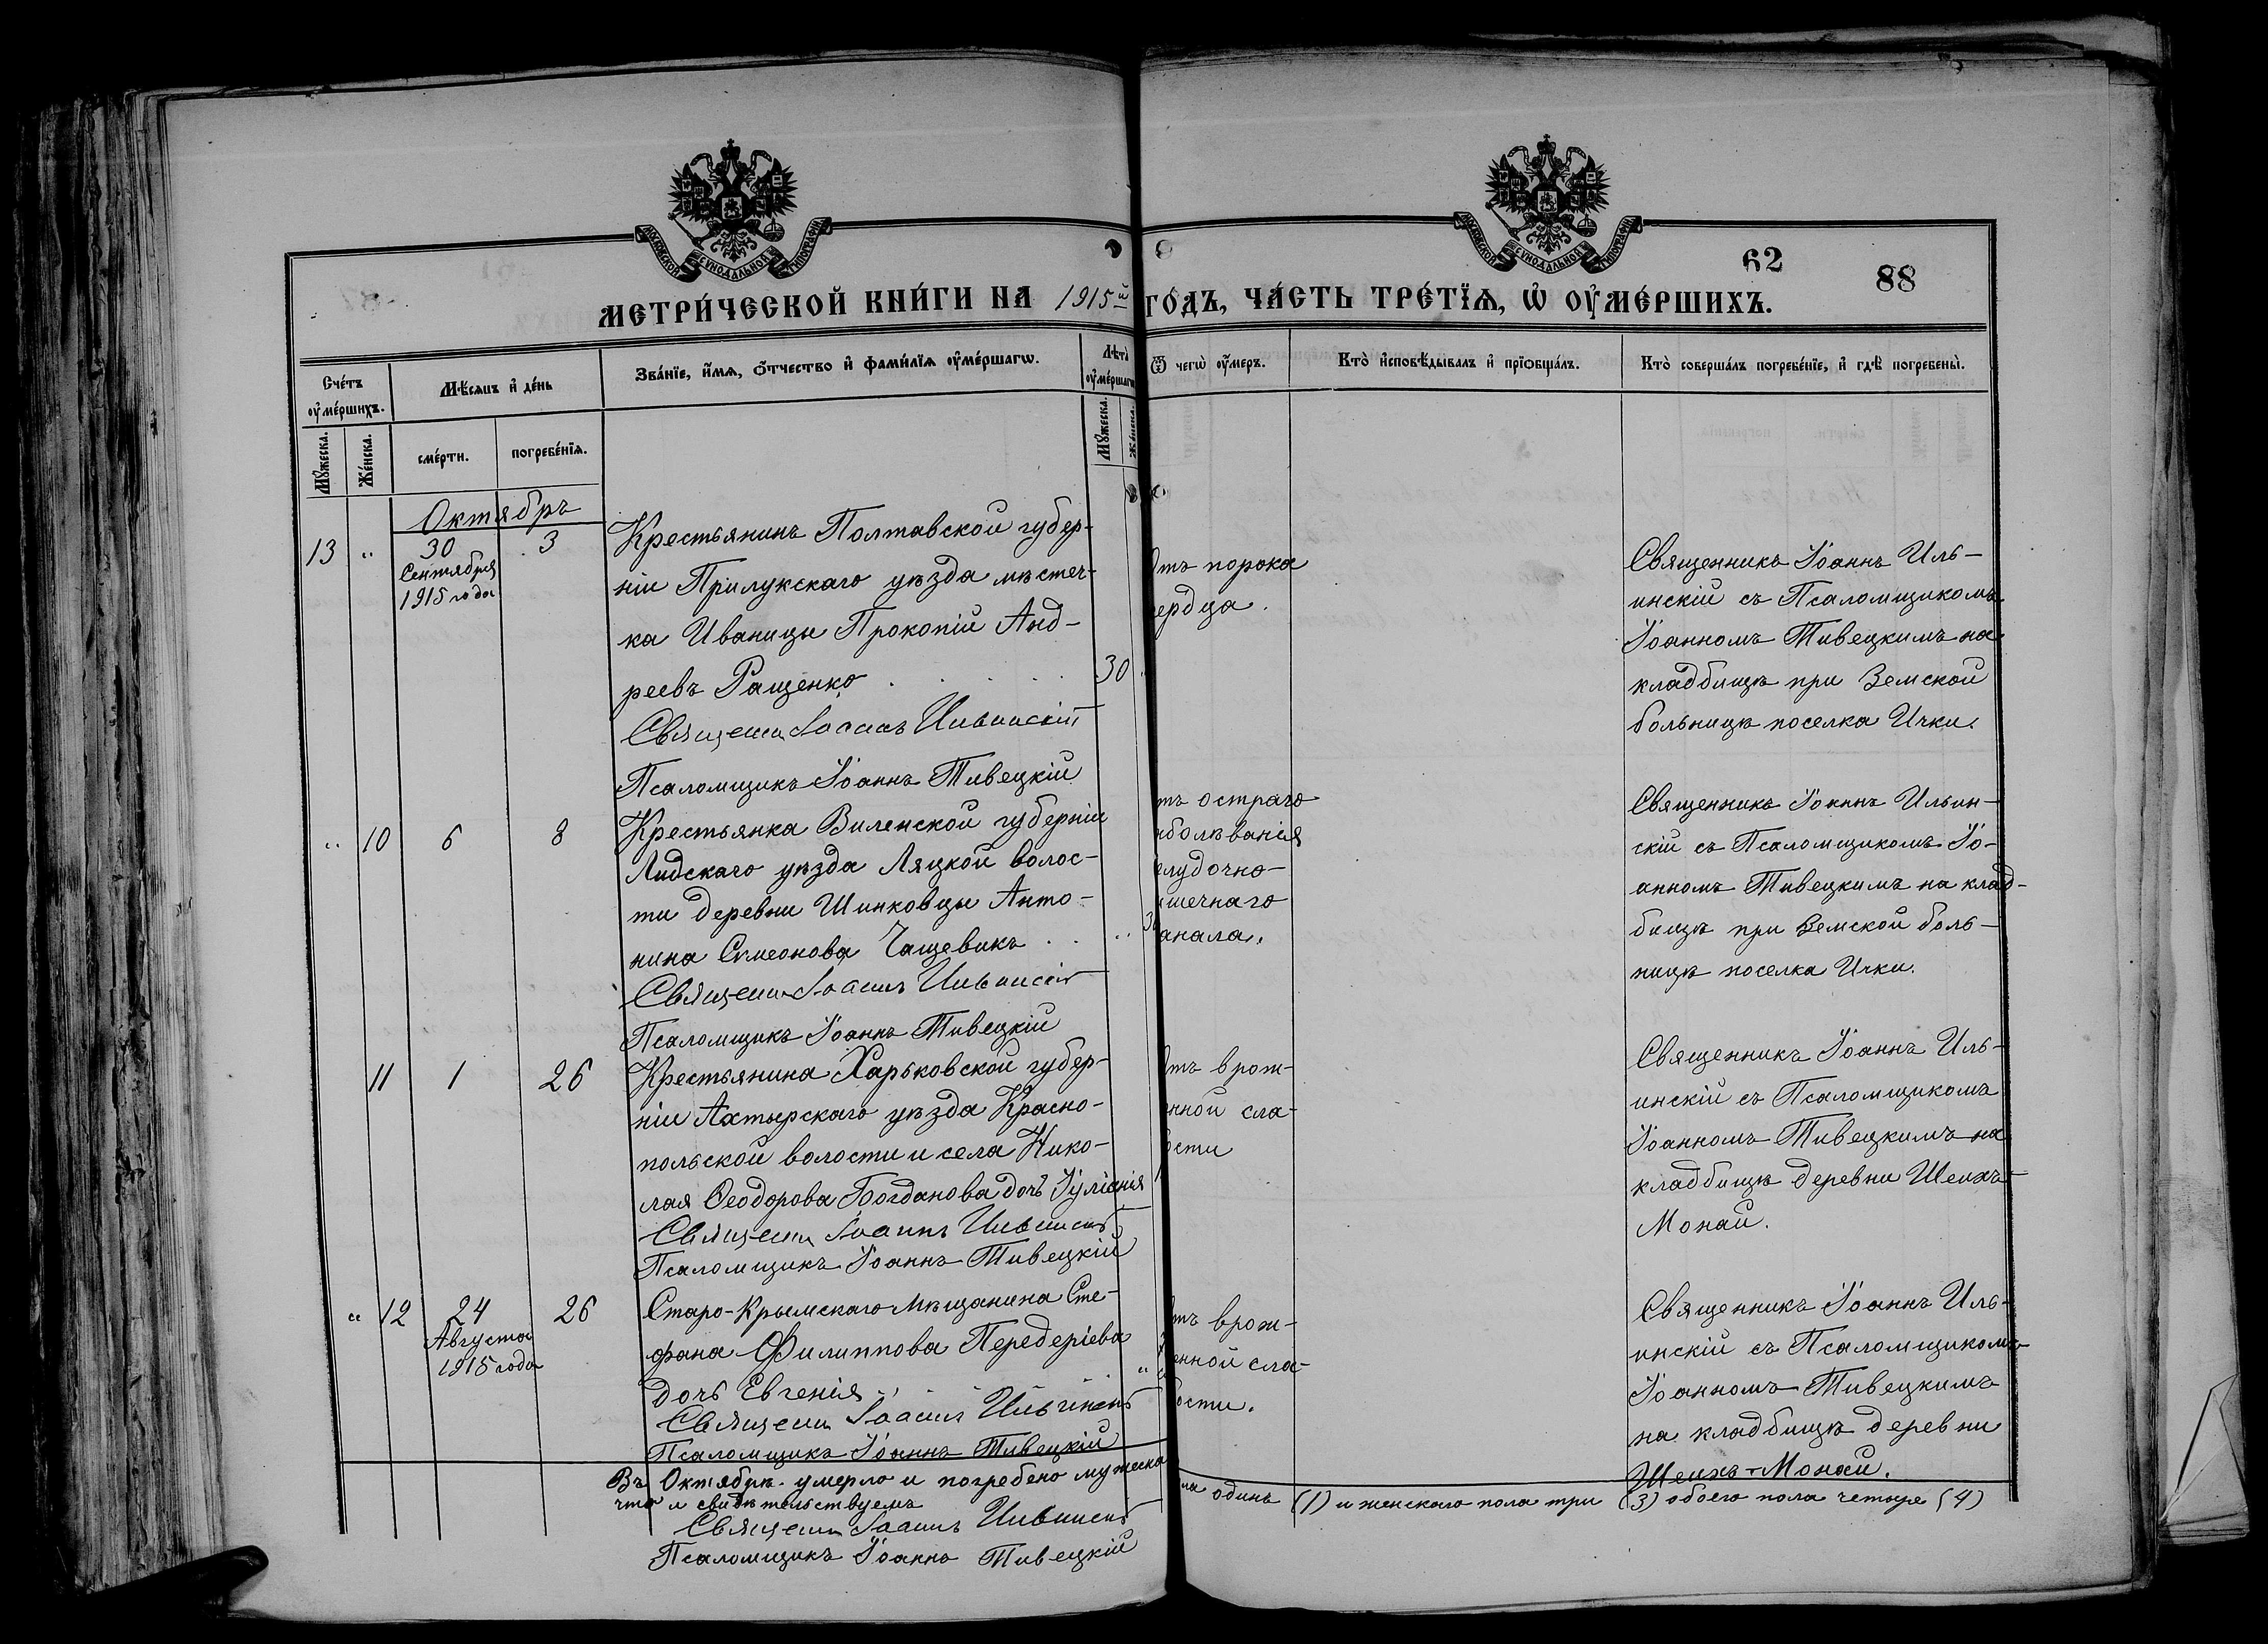 МОСКОВСКОЙ СѴНОДАЛЬНОЙ ТИПОГРАФІИ
МОСКОВСКОЙ СѴНОДАЛЬНОЙ ТИПОГРАФІИ
62
88
МЕТРИ́ЧЕСКОЙ КНИ́ГИ НА 1915й ГО́ДЪ, ЧА́СТЬ ТРЕ́ТЇѦ, Ѡ҆ ОУ҆МЕ́РШИХЪ.
Сче́тъ оу҆ме́ршихъ.
Мѣ́сяцъ и҆ де́нь
Зва́нїе, и҆́мѧ, о҆́тчество и҆ фами́лїѧ оу҆ме́ршагѡ.
Лѣ́та оу҆ме́ршаг
Ѿ чегѡ̀ оу҆́меръ.
Кто̀ и҆сповѣ́дывалъ и҆ прїѡбща́лъ.
Кто̀ соверша́лъ погребе́нїе, и҆ гдѣ̀ погребены̀.
Мꙋ́жеска.
Же́нска.
сме́рти.
погребе́нїѧ.
Мꙋ́жеска.
Же́нска.
Октябрь
13 " 30 3
Сентября
1915 года
Крестьянинъ Полтавской губер-
ніи Прилукскаго уѣзда мѣстеч-
ка Иваницы Прокопій Анд-
реевъ Ращенко . . . . . 30
Священ Іоаннъ Ильинскій
Псаломщикъ Іоаннъ Тивецкій
Отъ порока
ердца.
Священникъ Іоаннъ Иль-
инскій съ Псаломщикомъ
Іоанномъ Тивецкимъ на
кладбищѣ при Земской
больницѣ поселка Ички.
" 10 6 8
Крестьянка Виленской губерніи
Лидскаго уѣзда Ляцкой волос-
ти деревни Шинковцы Анто-
нина Симеонова Чащевикъ . . "
Священ Іоаннъ Ильинскій
Псаломщикъ Іоаннъ Тивецкій
тъ остраго
аболѣванія
елудочно-
ишечнаго
анала.
Священникъ Іоаннъ Ильин-
скій съ Псаломщикомъ Іо-
анномъ Тивецкимъ на клад-
бищѣ при Земской боль-
ницѣ поселка Ички.
11 1 26
Крестьянина Харьковской губер-
ніи Ахтырскаго уѣзда Красно-
польской волости и села Нико-
лая Ѳеодорова Богданова дочь Іуліанія
Священ Іоаннъ Ильинскій
Псаломщикъ Іоаннъ Тивецкій
Отъ врож-
нной сла-
ости
Священникъ Іоаннъ Иль-
инскій съ Псаломщикомъ
Іоанномъ Тивецкимъ на
кладбищѣ деревни Шеихъ-
Монай.
" 12 24 26
Августа
1915 года
Старо-Крымскаго мѣщанина Сте-
фана Филиппова Передеріева
дочь Евгенія . . . . "
Священ Іоаннъ Ильинскій
Псаломщикъ Іоаннъ Тивецкій
тъ врож-
енной сла-
ости.
Священникъ Іоаннъ Иль-
инскій съ Псаломщикомъ
Іоанномъ Тивецкимъ
на кладбищѣ деревни
Шеихъ-Монай.
Въ Октябрѣ умерло и погребено мужеска ла одинъ (1) и женскаго пола три (3) обоего пола четыре (4)
что и свидѣтельствуемъ
Священ Іоаннъ Ильинскій
Псаломщикъ Іоаннъ Тивецкій